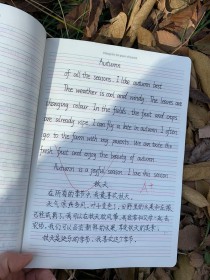 Autumn
of all the seasons. I like autumn best
The weather is cool and windy. The leaves are
changing colour. In the fields, the fruit and crops
are already ripe. I can fly a kite in autumn. I often
go to the farm with my parents. We can taste the
fresh fruit and enjoy the beauty of autumn.
Autumn is a joyful season. I love this season
秋天
A+
在所有的季节中，我最喜欢秋天。
天气凉爽有风，叶子变色了，田野里的水果和庄稼
已经成熟了。我可以在秋天放风筝。我经常和父母一起去
农场。我们可以品尝新鲜的水果，享受秋天的美景。
秋天是快乐的季节。我喜欢这个季节。